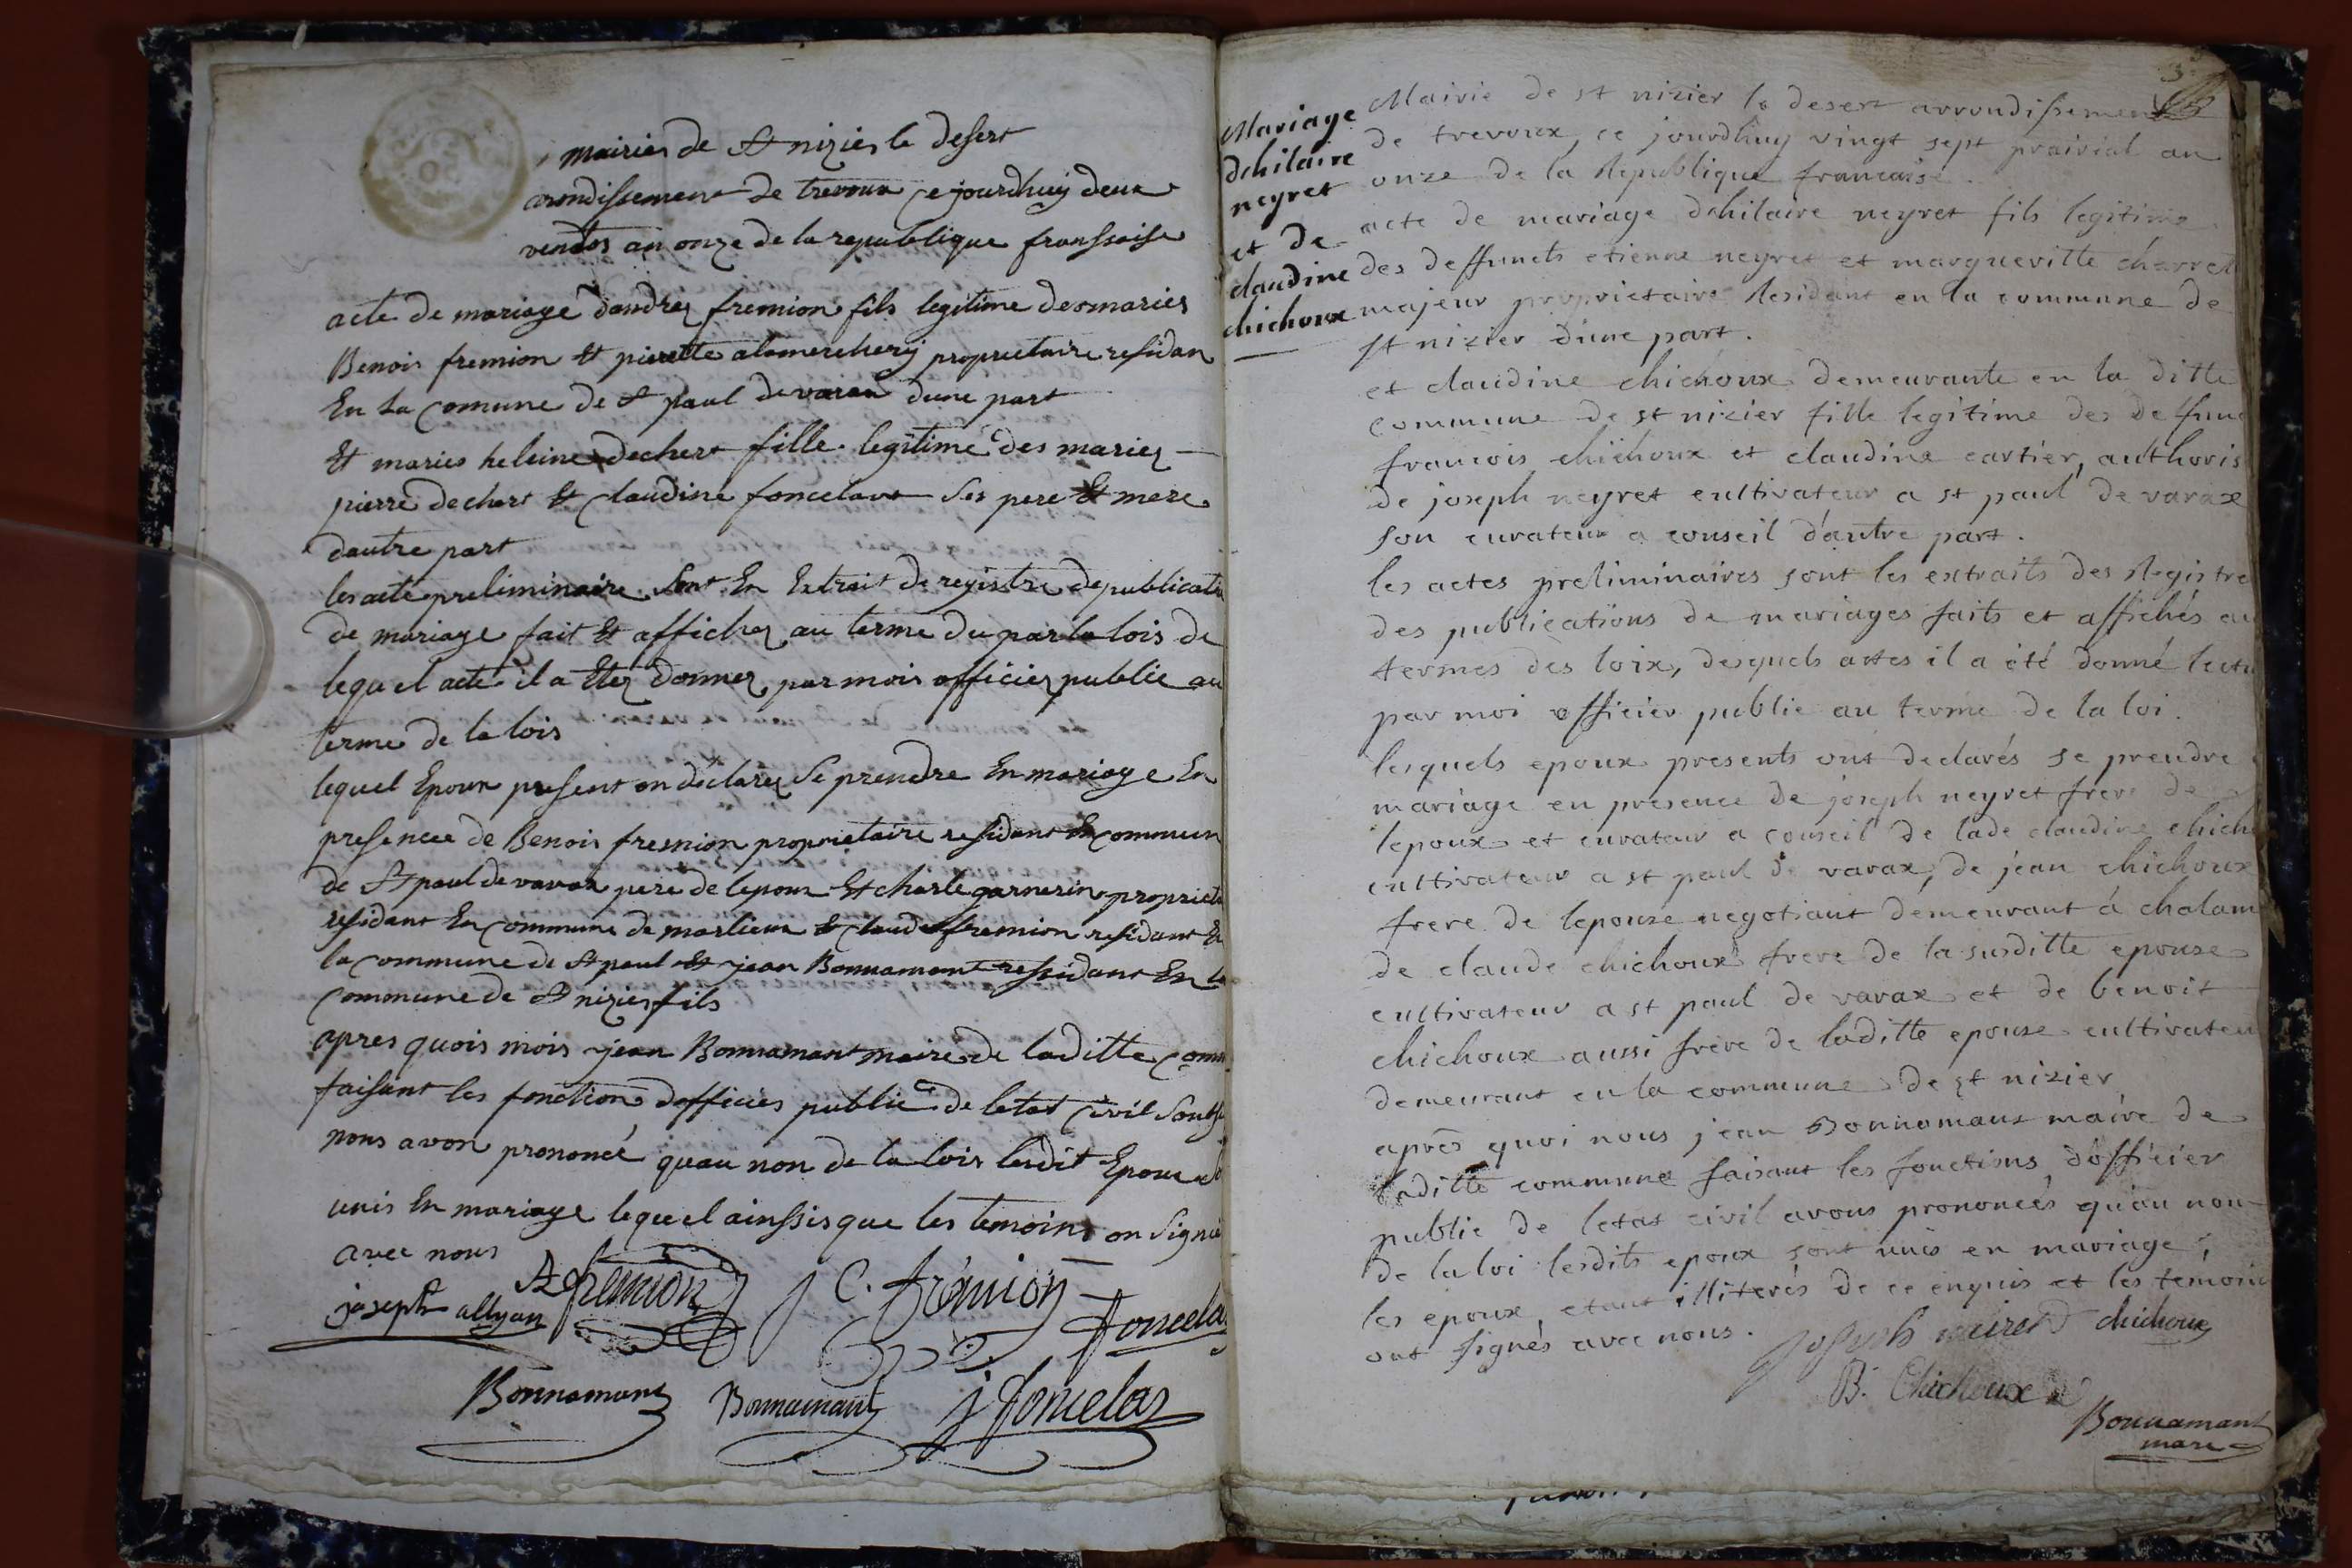 mairies de St nizies le desert
arondissement de trevoux ce jourdhuy deux
ventos an onze de la republique franssoise
acte de mariage dandrez fremion fils legitime desmaries
Benois fremion Et pierette alamercherÿ proprietaire residan
En La comune de St paul devarax dune part
Et maries heleine dechert fille legitime des mariez
pierre dechert Et Claudine foncelave Ses pere Et mere
dautre part
les acte preliminaire Sont En Extrait de registre depublicati
de mariage fait Et affichez au terme du par la lois de
lequel acte il a Etez donnez par mois officier public au
terme de la lois
lequel Epoux present on déclarez Se prendre En mariage En
presence de Benois fremion proprietaire residant En commun
de St paul devarax pere de lepoux Et charle garnerin propriet
residant En commune de marlieux Et claude fremion residant E
la commune de St paul Et jean Bonnamant ressidant En la
commune de St nizies fils
apres quois mois jean Bonnamant maire de laditte comm
faisant les fonction dofficies public de letat civil
nous avon prononcé quau non de la lois lesdit Epoux
unis En mariage lequel ainssis que les temoins on Signé
avec nous
joseph allyan A fremion C. fremion foncela
Bonnamant Bonnamant j foncelas
3
Mariage
dhilaire
neyret
et de
claudine
chichoux
Mairie de st nizier le desert arrondissement
de trevoux, ce jourdhuy vingt sept prairial an
onze de la Republique francaise.
acte de mariage dhilaire neyret fils legitime
des deffuncts etienne neyret et margueritte charret
majeur proprietaire Residant en la commune de
st nizier d'une part.
et claudine chichoux demeurante en la ditte
commune de st nizier fille legitime des defunc
francois chichoux et claudine cartier, authoris
de joseph neyret cultivateur a st paul de varax
son curateur a conseil d'autre part.
les actes preliminaires sont les extraits des Registre
des publications de mariages faits et affichés au
termes des loix, desquels actes il a été donné lectu
par moi officier public au terme de la loi.
lesquels epoux presents ont declarés se prendre
mariage en presence de joseph neyret frere de
lepoux et curateur a conseil de lade claudine chich
cultivateur a st paul de varax, de jean chichoux
frere de lepouse negotiant demeurant à chalam
de claude chichoux frere de la susditte epouse
cultivateur a st paul de varax et de benoit
chichoux aussi frere de laditte epouse cultivateu
demeurant en la commune de st nizier
après quoi nous jean Bonnamant maire de
laditte commune faisant les fonctions d'officier
public de letat civil avons prononcés qu'au nom
de la loi lesdits epoux sont unis en mariage,
les epoux etant illiterés de ce enquis et les témoin
ont signés avec nous. joseph neiret chichoux
B. Chichoux
Bonnamant
mare